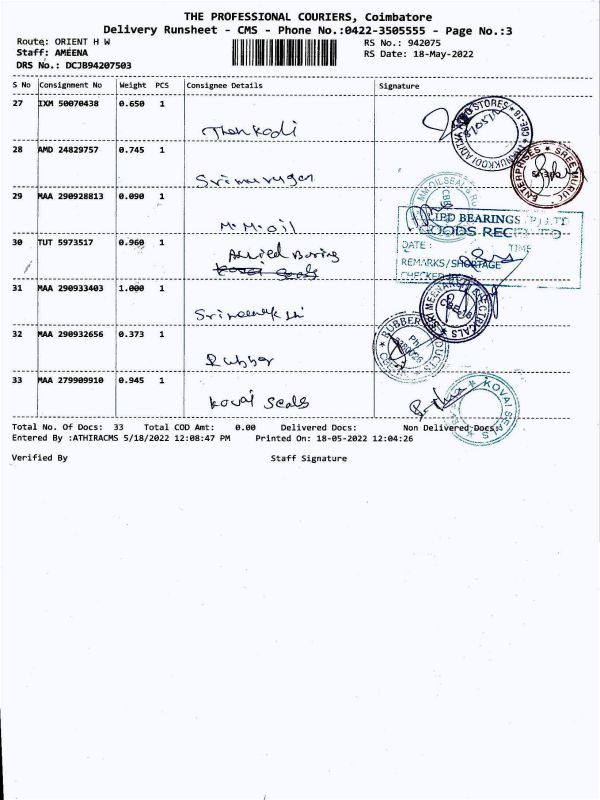 THE PROFESSIONAL COURIERS, Coimbatore
Delivery Runsheet - CMS - Phone No.:0422-3505555 - Page No.:3
Route: ORIENT H W
RS No.: 942075
Staff: AMEENA
RS Date: 18-May-2022
DRS No.: DCJB94207503
S No Consignment No Weight PCS Consignee Details Signature
27 IXM 50070438 0.650 1
STORES
CBE-18
28 AMD 24829757 0.745 1
ENTERPRISES
29 MAA 290928813 0.090 1
M.M.oil
BEARINGS
30 TUT 5973517 0.960 1
GOODS
DATE :
TIME
Seals
REMARKS/SHORTAGE
31 MAA 290933403 1.000 1
SRI MEENAKSHI ELECTRICALS
32 MAA 290932656 0.373 1
Rubber
RUBBER
33 MAA 279909910 0.945 1
Kovai Seals
KOVAI SEALS
Total No. Of Docs: 33 Total COD Amt: 0.00 Delivered Docs: Non Delivered Docs:
Entered By :ATHIRACMS 5/18/2022 12:08:47 PM Printed On: 18-05-2022 12:04:26
Verified By Staff Signature